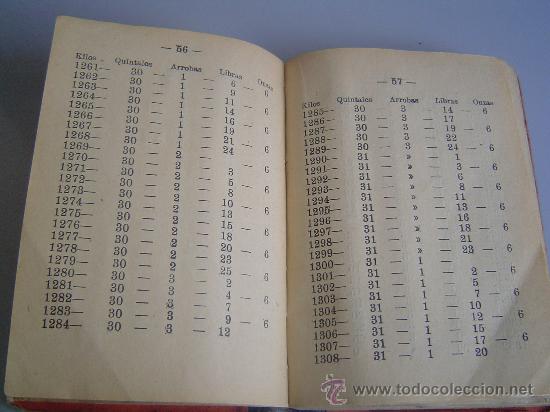 — 56 —
Kilos Quintales Arrobas Libras Onzas
1261— 30 — 1 — 6 — 6
1262— 30 — 1 — 9
1263— 30 — 1 — 11 — 6
1264— 30 — 1 — 14
1265— 30 — 1 — 16 — 6
1266— 30 — 1 — 19
1267— 30 — 1 — 21 — 6
1268— 30 — 1 — 24
1269— 30 — 2 — — 6
1270— 30 — 2 — 3
1271— 30 — 2 — 5 — 6
1272— 30 — 2 — 8
1273— 30 — 2 — 10 — 6
1274— 30 — 2 — 13
1275— 30 — 2 — 15 — 6
1276— 30 — 2 — 18
1277— 30 — 2 — 20 — 6
1278— 30 — 2 — 23
1279— 30 — 2 — 25 — 6
1280— 30 — 3 — 2
1281— 30 — 3 — 4 — 6
1282— 30 — 3 — 7
1283— 30 — 3 — 9 — 6
1284— 30 — 3 — 12
— 57 —
Kilos Quintales Arrobas Libras Onzas
1285— 30 — 3 — 14 — 6
1286— 30 — 3 — 17
1287— 30 — 3 — 19 — 6
1288— 30 — 3 — 22
1289— 30 — 3 — 24 — 6
1290— 31 — » — 1
1291— 31 — » — 3 — 6
1292— 31 — » — 6
1293— 31 — » — 8 — 6
1294— 31 — » — 11
1295— 31 — » — 13 — 6
1296— 31 — » — 16
1297— 31 — » — 18 — 6
1298— 31 — » — 21
1299— 31 — » — 23 — 6
1300— 31 — 1 —
1301— 31 — 1 — 2 — 6
1302— 31 — 1 — 5
1303— 31 — 1 — 7 — 6
1304— 31 — 1 — 10
1305— 31 — 1 — 12 — 6
1306— 31 — 1 — 15
1307— 31 — 1 — 17 — 6
1308— 31 — 1 — 20
todocoleccion
www.todocoleccion.net